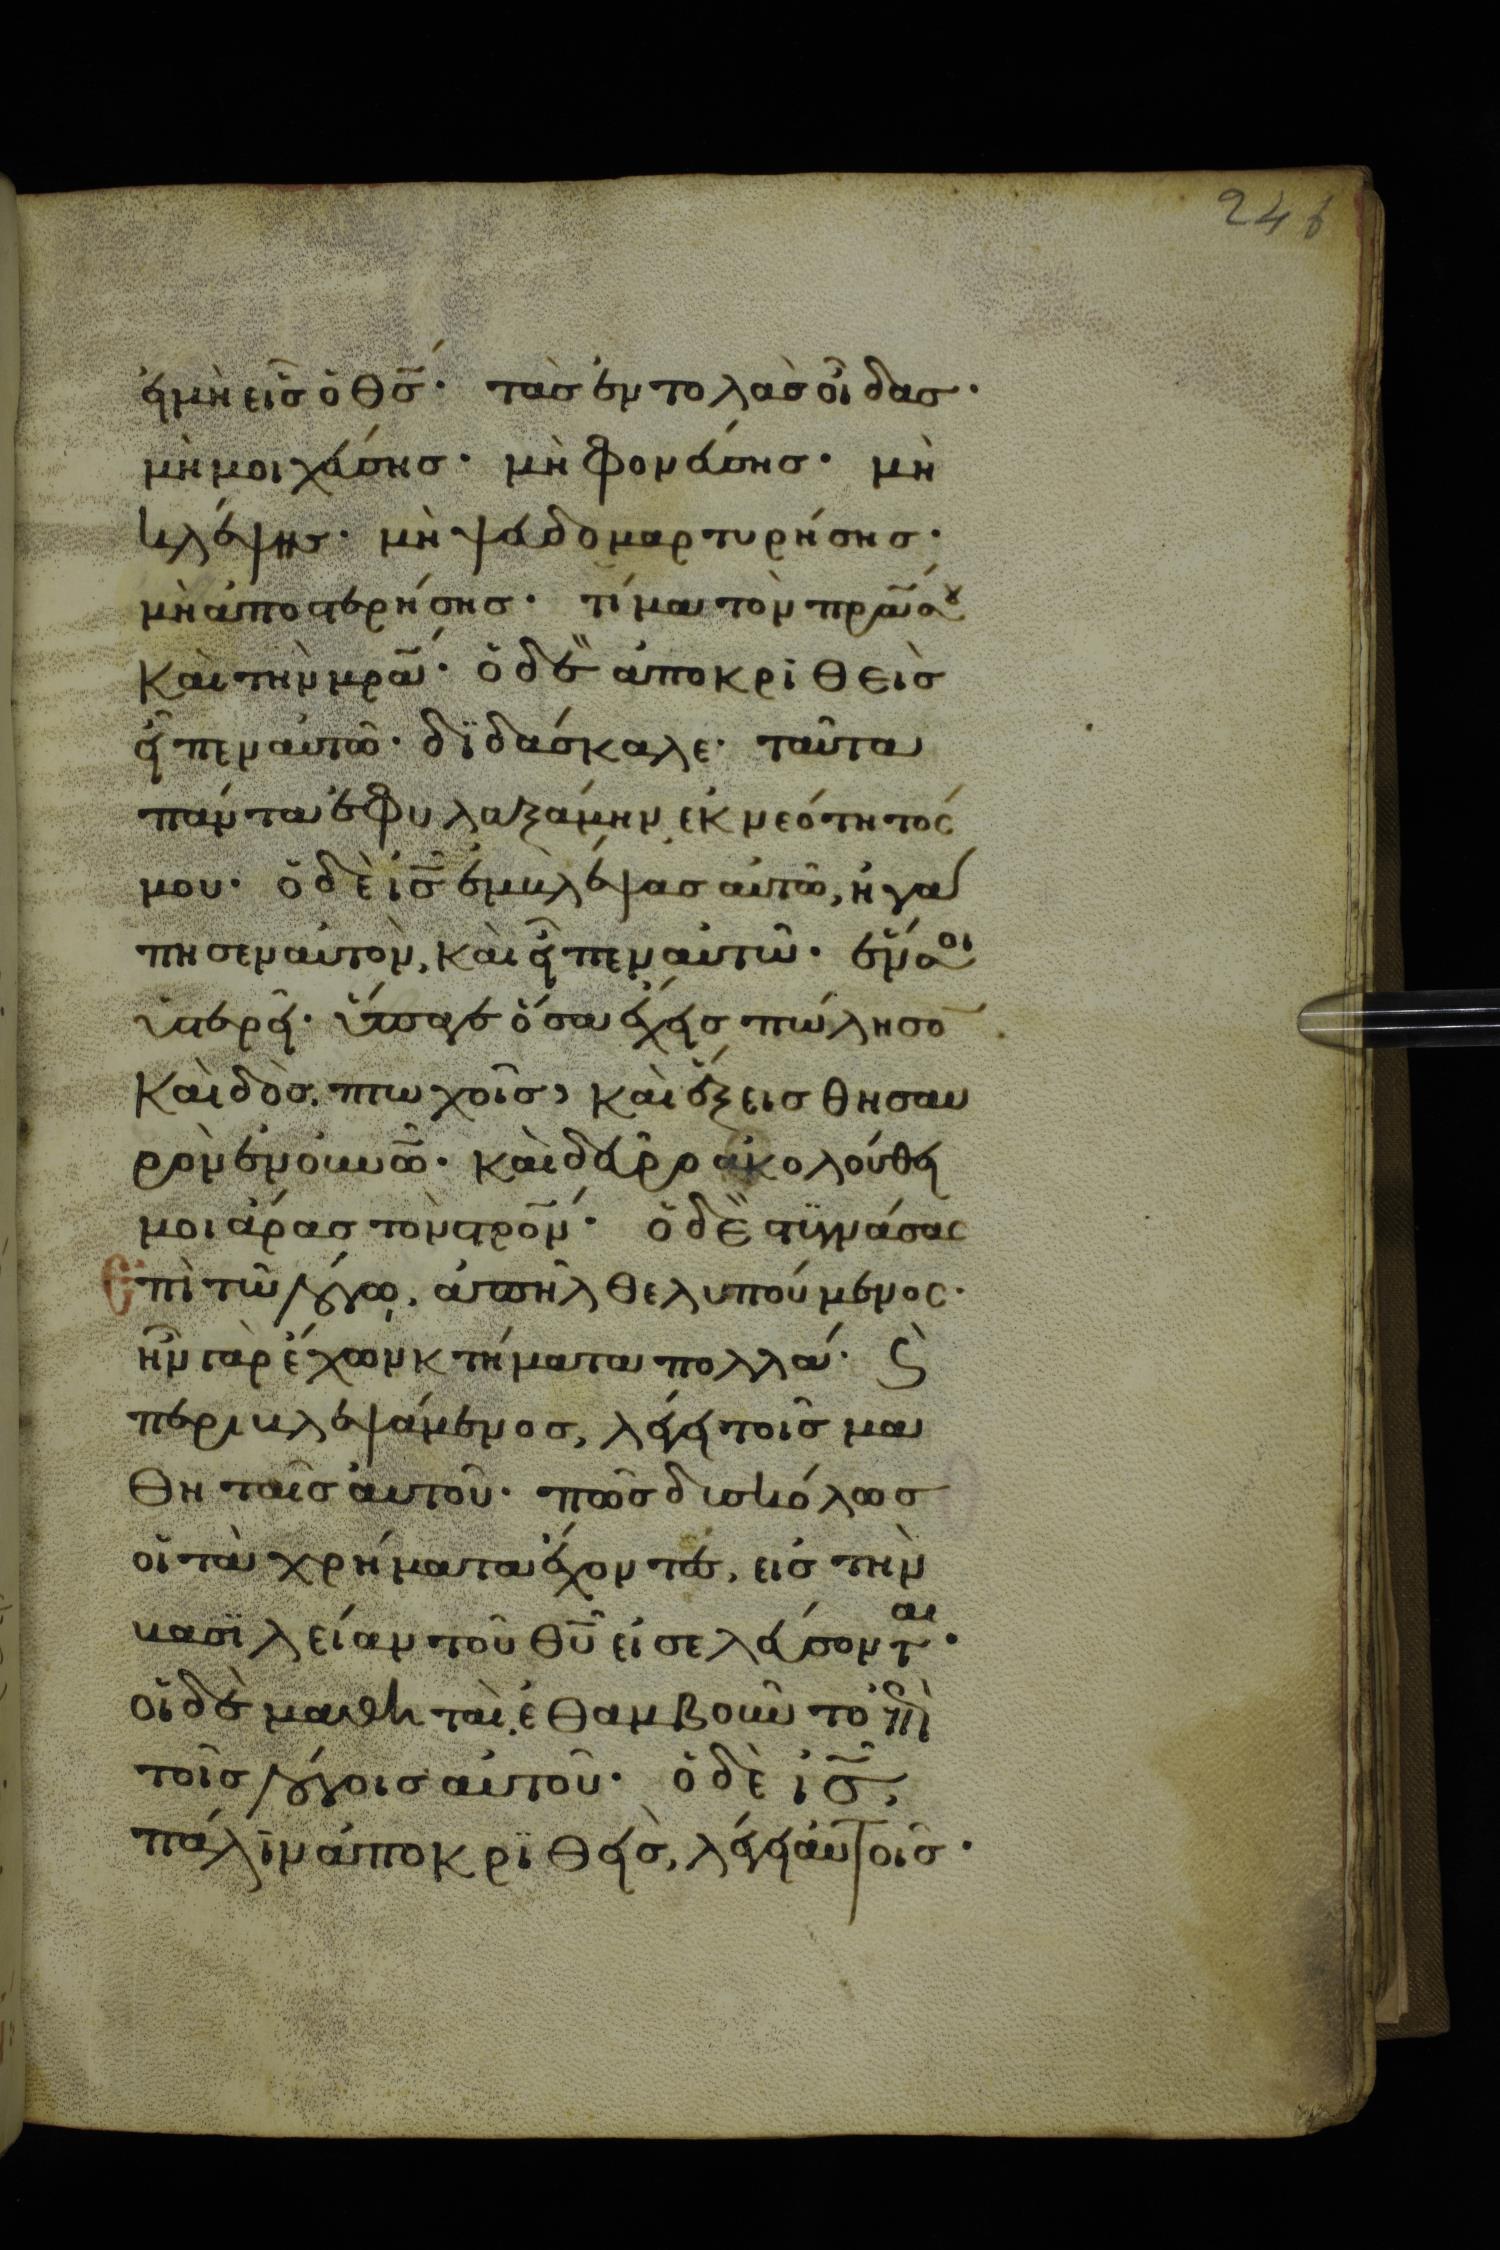 246
εἰ μὴ εἷς ὁ θς̄· τὰς ἐντολὰς οἶδας·
μὴ μοιχεύσης· μὴ φονεύσης· μὴ
κλέψης· μὴ ψευδομαρτυρήσης·
μὴ ἀποστερήσης· τίμα τὸν πρ̄α σου
καὶ τὴν μρ̄α· ὁ δὲ ἀποκριθεὶς
εἶπεν αὐτῶ· διδάσκαλε· ταῦτα
πάντα ἐφυλαξάμην ἐκ νεότητός
μου· ὁ δὲ ις̄ ἐμβλέψας αὐτῶ, ἠγά
πησεν αὐτὸν, καὶ εἶπεν αὐτῶ· ἕν σοι
ὑστερεῖ· ὕπαγε ὅσα ἔχεις πώλησο̄
καὶ δὸς πτωχοῖς, καὶ ἕξεις θησαυ
ρὸν ἐν οὐνῶ· καὶ δεῦρο ἀκολούθει
μοι ἄρας τὸν στρο̄ν· ὁ δὲ στυγνάσας
ἐπὶ τῶ λόγω, ἀπῆλθε λυπούμενος·
ἦν γὰρ ἔχων κτήματα πολλά· ϛ̀
περιβλεψάμενος, λέγει τοῖς μα
θηταῖς αὐτοῦ· πῶς δυσκόλως
οἱ τὰ χρήματα ἔχοντες, εἰς τὴν
βασιλείαν τοῦ θῡ εἰσελεύσονται·
οἱ δὲ μαθηταὶ ἐθαμβοῦντο ἐπὶ
τοῖς λόγοις αὐτοῦ· ὁ δὲ ις̄,
πάλιν ἀποκριθεὶς, λέγει αὐτοῖς·